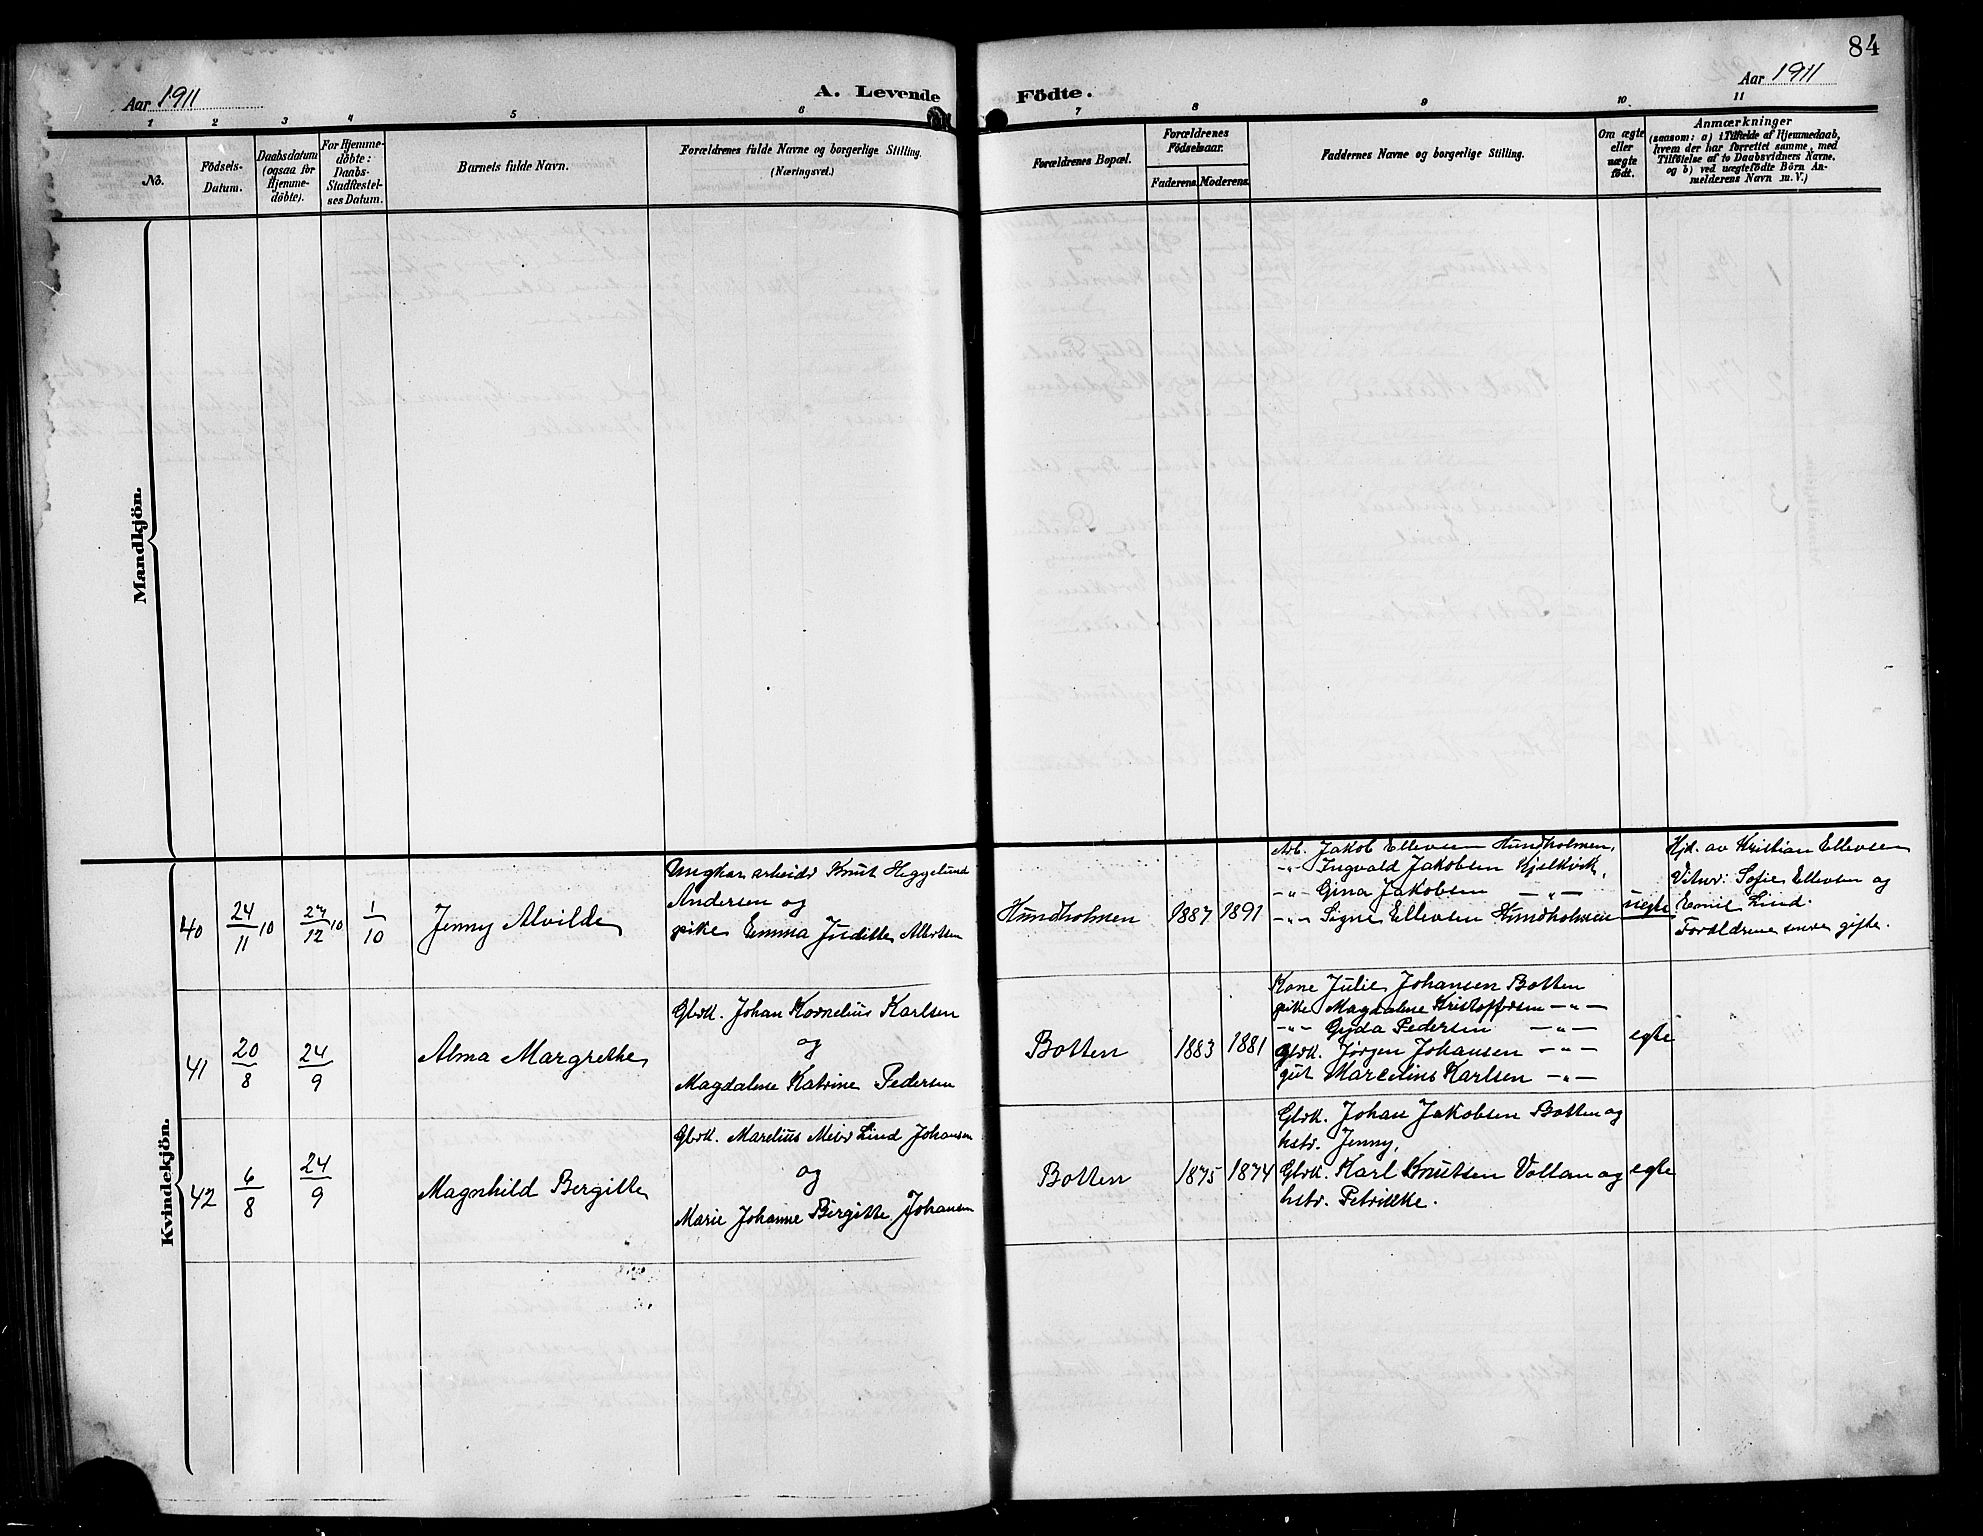 84
Aar 1911
A. Levende Födte.
Aar 1911
1 2 3 4 5 6 7 8 9 10 11
No.
Födsels-
Datum.
Daabsdatum
(ogsaa for
Hjemme-
döbte).
For Hjemme-
döbte:
Daabs-
Stadfæstel-
ses Datum.
Barnets fulde Navn.
Forældrenes fulde Navne og borgerlige Stilling.
(Næringsvei.)
Forældrenes Bopæl.
Forældrenes
Födselsaar.
Faderens. Moderens.
Faddernes Navne og borgerlige Stilling.
Om ægte
eller
uægte
födt.
Anmærkninger
(saasom: a) i Tilfælde af Hjemmedaab,
hvem der har forrettet samme, med
Tilföielse af to Daabsvidners Navne,
og b) ved uægtefödte Börn An-
melderens Navn m. V.)
Mandkjön.
Kvindekjön.
40
24/11 10
27/12 10
1/10
Jenny Alvilde
Ungkar arbeidr Knut Heggelund
Andersen og
pike Emma Juditte Albrtsen
Hundholmen
1887
1891
Arb. Jakob Ellevsen Hundholmen,
-"- Ingvald Jakobsen Kjelkvik,
-"- Gina Jakobsen -"-
-"- Signe Ellevsen Hundholmen
uegte
Hjd. av Kristian Ellevsen
Vitnr: Sofie Ellevsen og
Eomil Lind.
Foraldrene senere gifte.
41
20/8
24/9
Alma Margrethe
Gbrk. Johan Kornelius Karlsen
og
Magdalene Katrine Pedersen
Botten
1883
1881
Kone Julie Johansen Botten
pike Magdalene Kristoffersen -"-
-"- Gyda Pedersen -"-
gbrk. Jørgen Johansen -"-
gut Marcelius Karlsen -"-
egte
42
6/8
24/9
Magnhild Bergitte
Gbrk. Marelius Meier Lind Johansen
og
Marie Johanne Birgitte Johansen
Botten
1875
1874
Gbrk. Johan Jakobsen Botten og
hstr. Jenny,
Gbrk. Karl Knutsen Vollan og
hstr. Petrikke.
egte